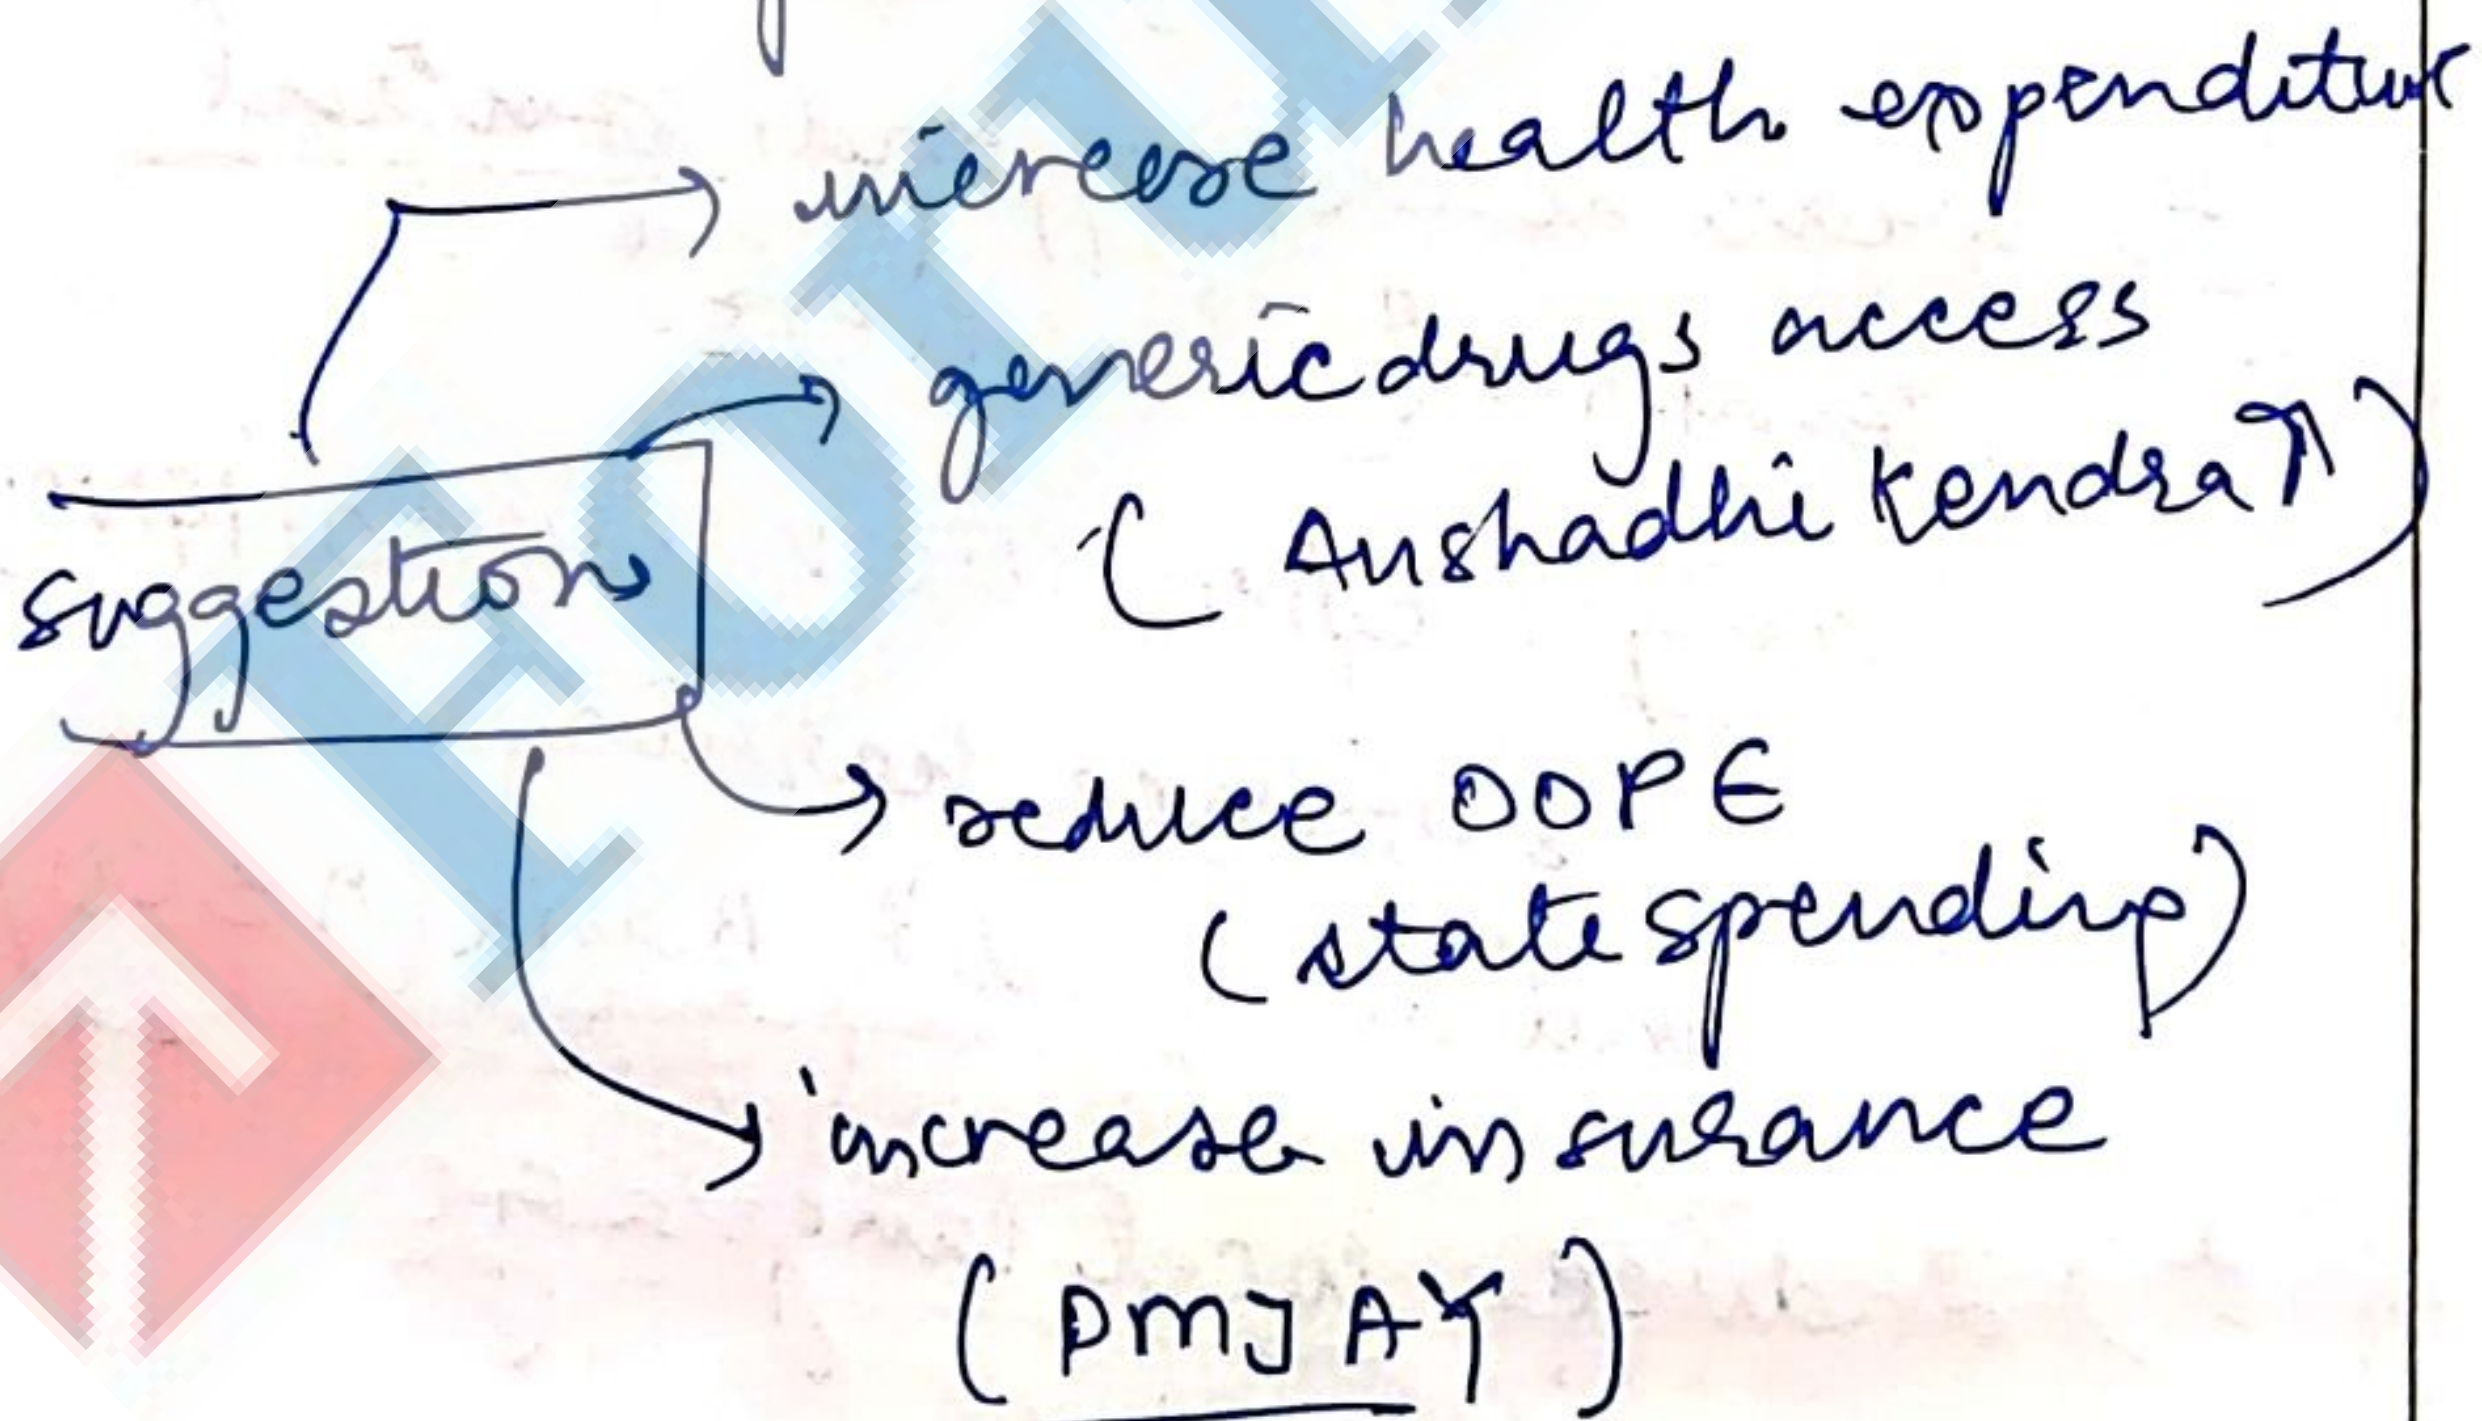 increase health expenditure
generic drugs access
(Aushadhi Kendra ↑)
suggestions
reduce OOPE
(state spending)
increase insurance
(PMJAY)